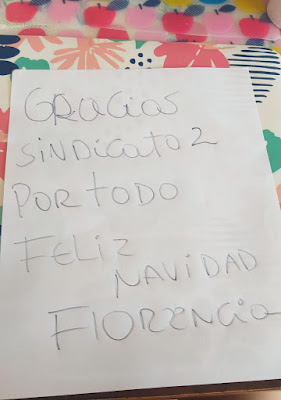 GRacias
SiNDicato2
PoR todo
FELiZ
NAViDAD
FlORENCia